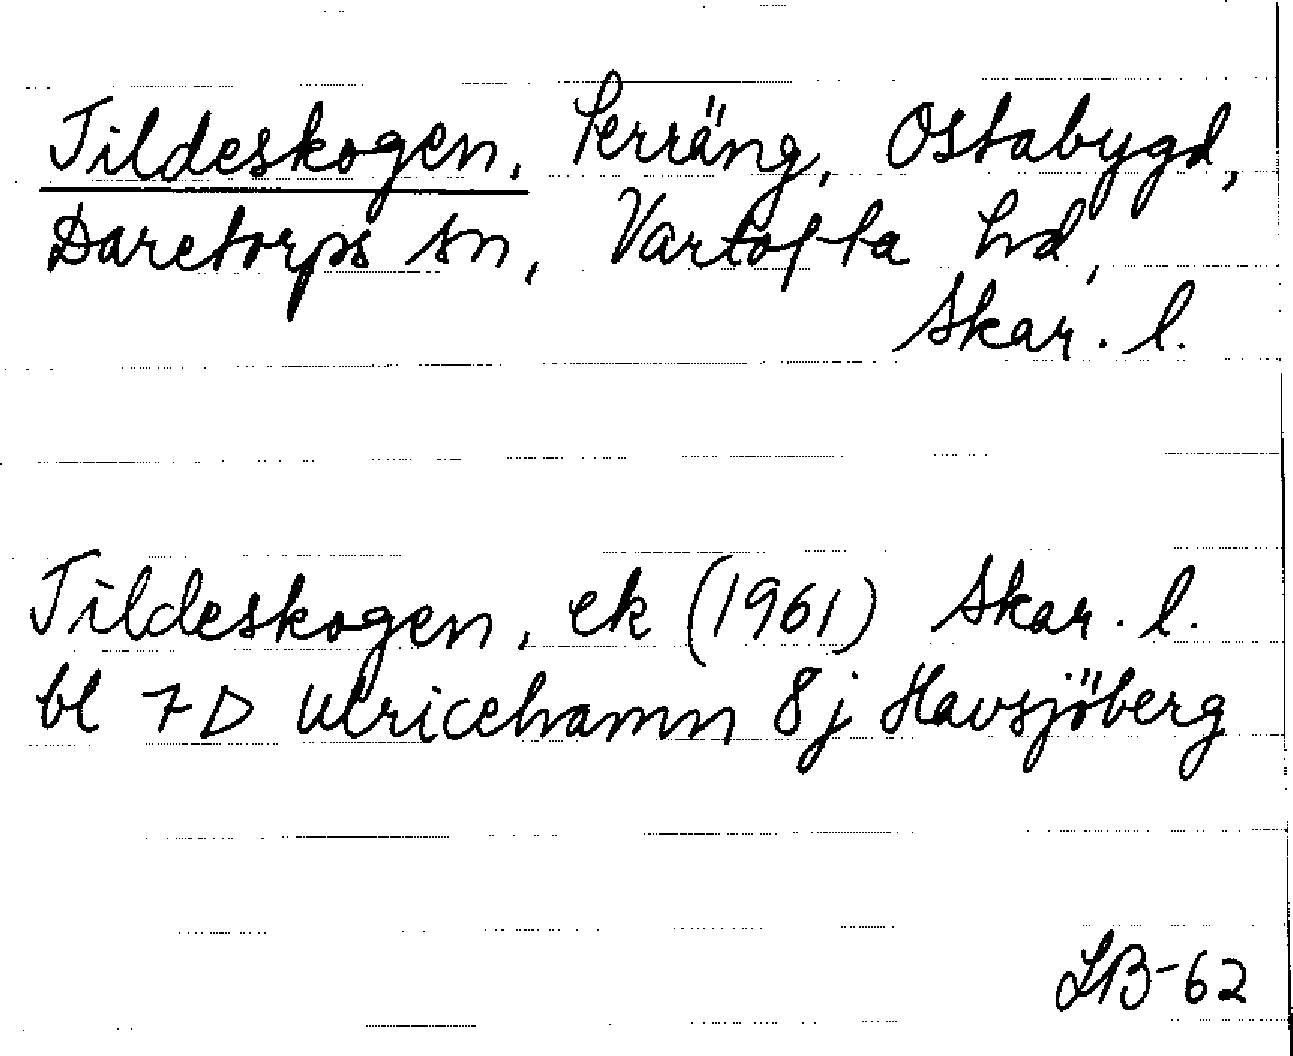 Tildeskogen, terräng, Ostabygd,
Daretorps sn, Vartofta hd,
Skar. l.
Tildeskogen, ek (1961) Skar. l.
bl 7D Ulricehamn 8j Havsjöberg
LB-62